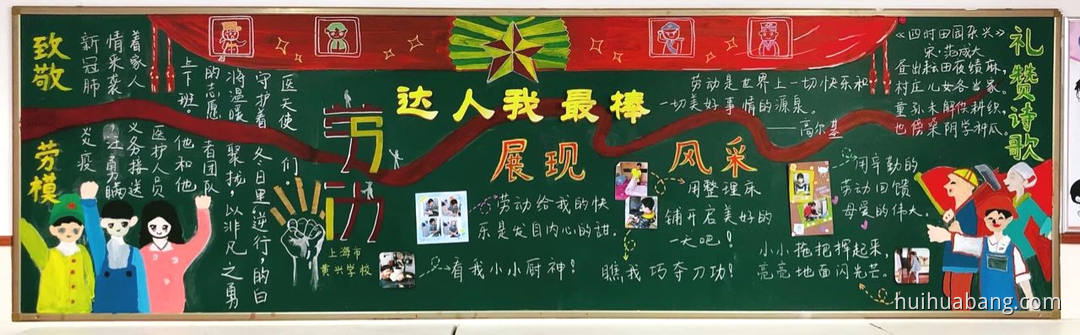 致敬
劳模
新冠肺炎疫
情来袭
着家人
义务接送
医护人员
上下班。他和他
的志愿者团队
将温暖聚拢,以非凡之勇
守护着冬日里逆行的白
医天使们。
劳动
上海市
黄兴学校
达人我最棒
展现 风采
劳动是世界上一切快乐和
一切美好事情的源泉
——高尔基
劳动给我的快
乐是发自内心的甜。
看我小小厨神!
用整理床
铺开启美好的
一天吧!
瞧我巧夺刀功!
用辛勤的
劳动回馈
母爱的伟大。
小小拖把挥起来,
亮亮地面闪光芒。
礼赞诗歌
《四时田园杂兴》
宋·范成大
昼出耘田夜绩麻,
村庄儿女各当家。
童孙未解供耕织,
也傍桑阴学种瓜。
huihuabang.com